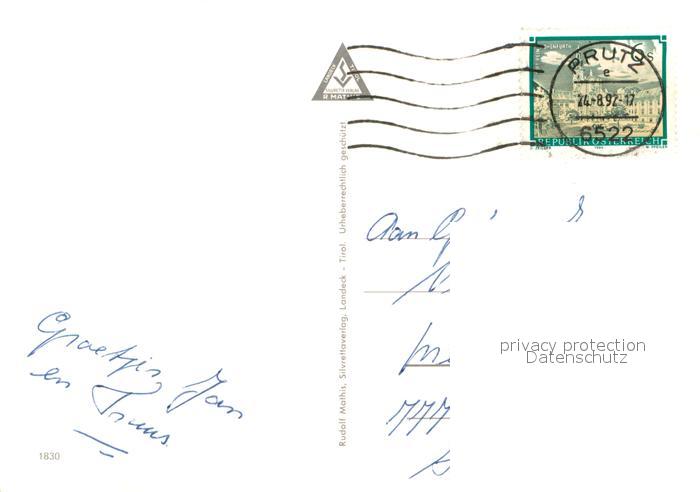 LANDECK
SILVRETTA VERLAG
R. MATHIS
PRUTZ
e
24.-8.92-17
6522
6 S
REPUBLIK ÖSTERREICH
Rudolf Mathis, Silvrettaverlag, Landeck - Tirol. Urheberrechtlich geschützt
Aan G
777
privacy protection
Datenschutz
Groetjes Jan
en Truus
1830